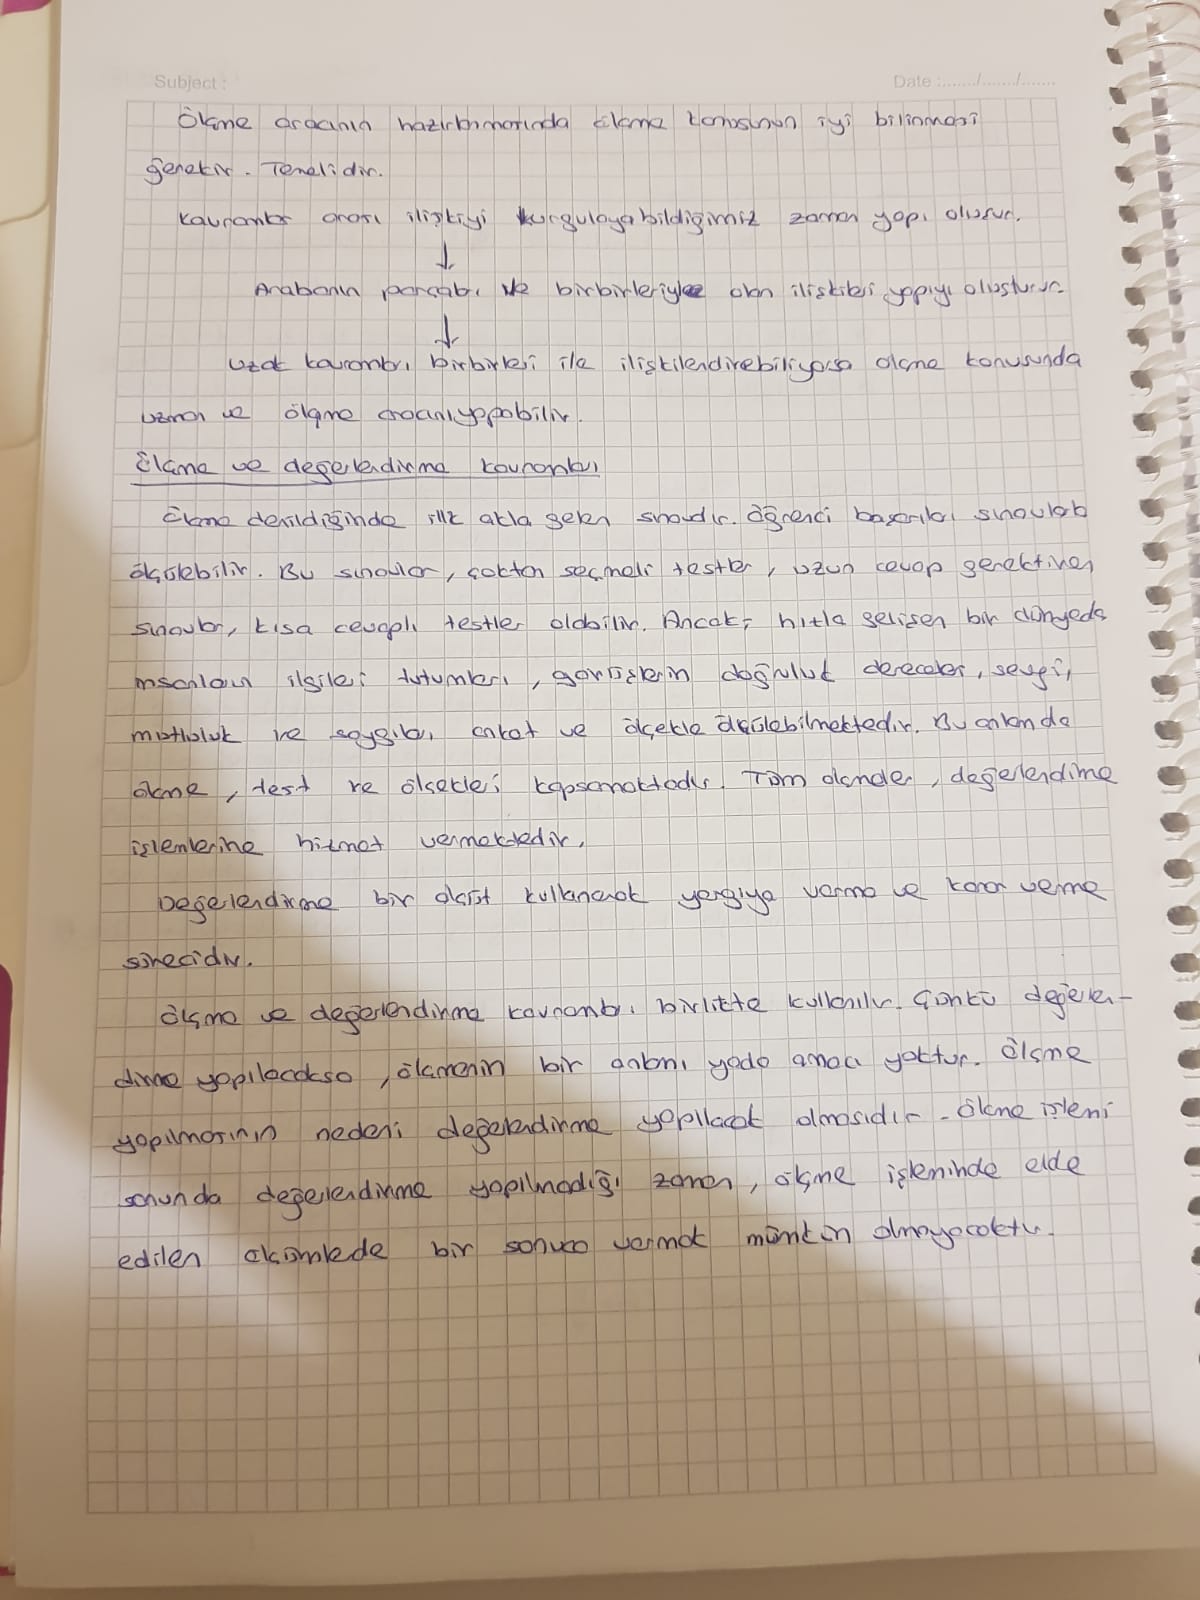 Subject :
Date :......./......./.......
Ölçme aracının hazırlanmasında ölçme konusunun iyi bilinmesi
gerekir. Temelidir.
Kavramlar arası ilişkiyi kurgulayabildiğimiz zaman yapı oluşur.
↓
Arabanın parçaları ve birbirleriyle olan ilişkileri yapıyı oluşturur.
↓
Uzak kavramları birbirleri ile ilişkilendirebiliyorsa ölçme konusunda
uzman ve ölçme aracını yapabilir.
Ölçme ve değerlendirme kavramları
Ölçme denildiğinde ilk akla gelen sınavdır. Öğrenci başarıları sınavlarla
ölçülebilir. Bu sınavlar, çoktan seçmeli testler, uzun cevap gerektiren
sınavlar, kısa cevaplı testler olabilir. Ancak, hızla gelişen bir dünyada
insanların ilgileri tutumları, görüşlerin doğruluk dereceleri, sevgi,
mutluluk ve saygıları anket ve ölçekle ölçülebilmektedir. Bu anlamda
ölçme, test ve ölçekleri kapsamaktadır. Tüm ölçmeler, değerlendirme
işlemlerine hizmet vermektedir.
Değerlendirme bir ölçüt kullanarak yargıya varma ve karar verme
sürecidir.
Ölçme ve değerlendirme kavramları birlikte kullanılır. Çünkü değerlen-
dirme yapılacaksa, ölçmenin bir anlamı yada amacı yoktur. Ölçme
yapılmasının nedeni değerlendirme yapılacak olmasıdır. Ölçme işlemi
sonunda değerlendirme yapılmadığı zaman, ölçme işleminde elde
edilen ölçümlerde bir sonuca varmak mümkün olmayacaktır.